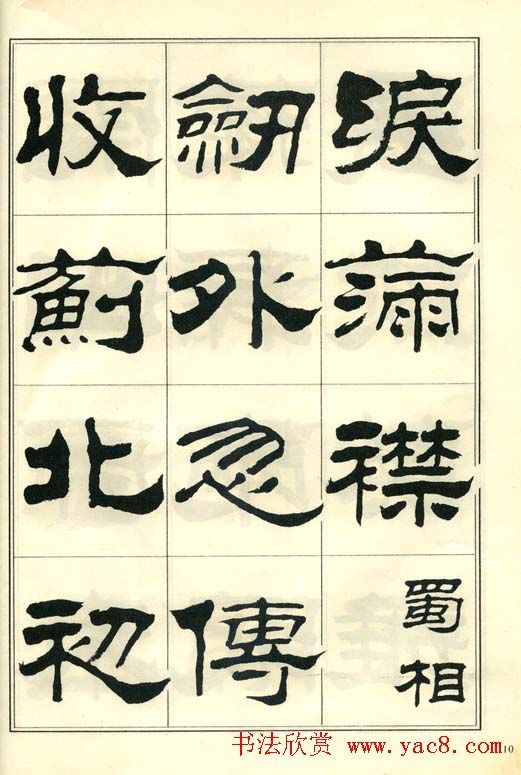 淚滿襟
蜀相
劒外忽傳
收薊北初
书法欣赏 www.yac8.com
10